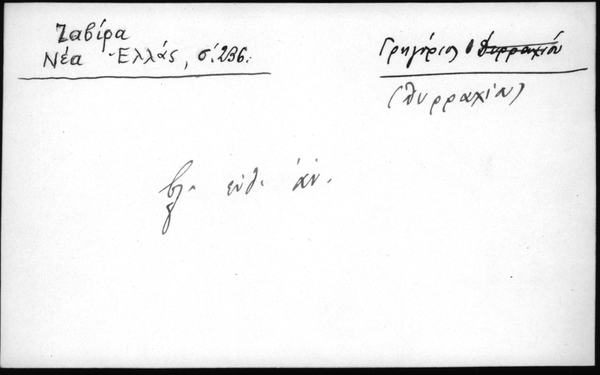 Ζαβίρα
Νέα Ἑλλάς, σ. 236.
Γρηγόριος ὁ Δυρραχίου
(Δυρραχίου)
βλ. εὐθ. ἄν.